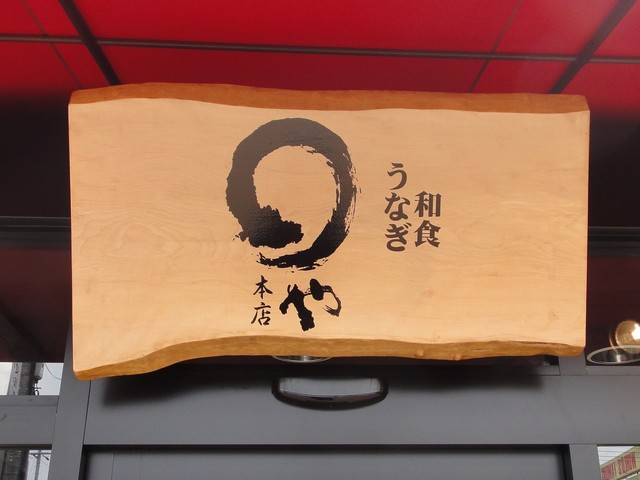 和食
うなぎ
や
本店